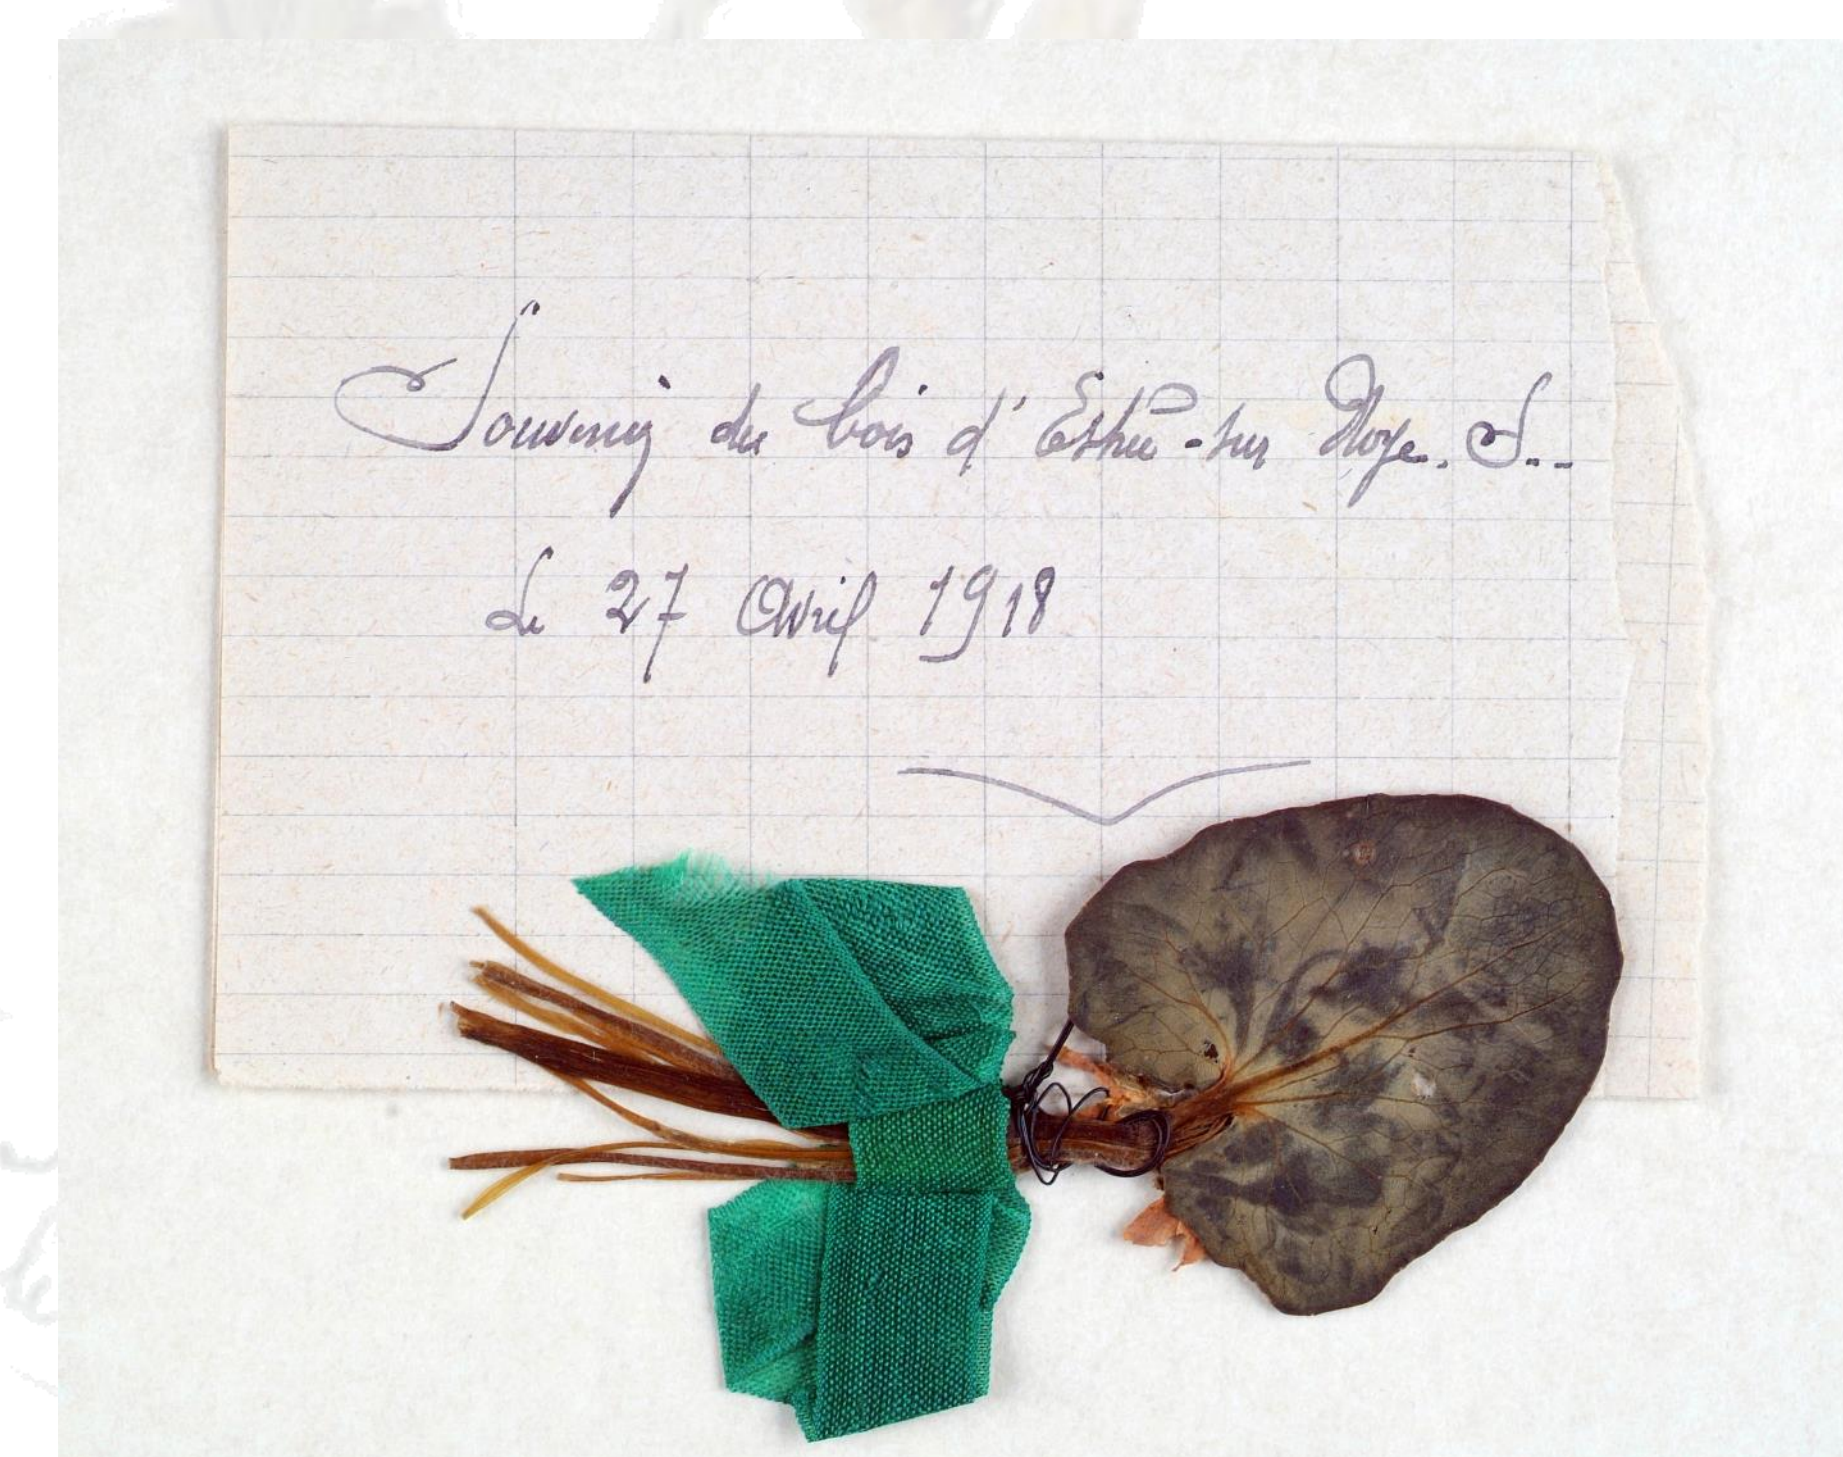 Souvenir du bois d'Esthu-sur Noye. S...
Le 27 Avril 1918